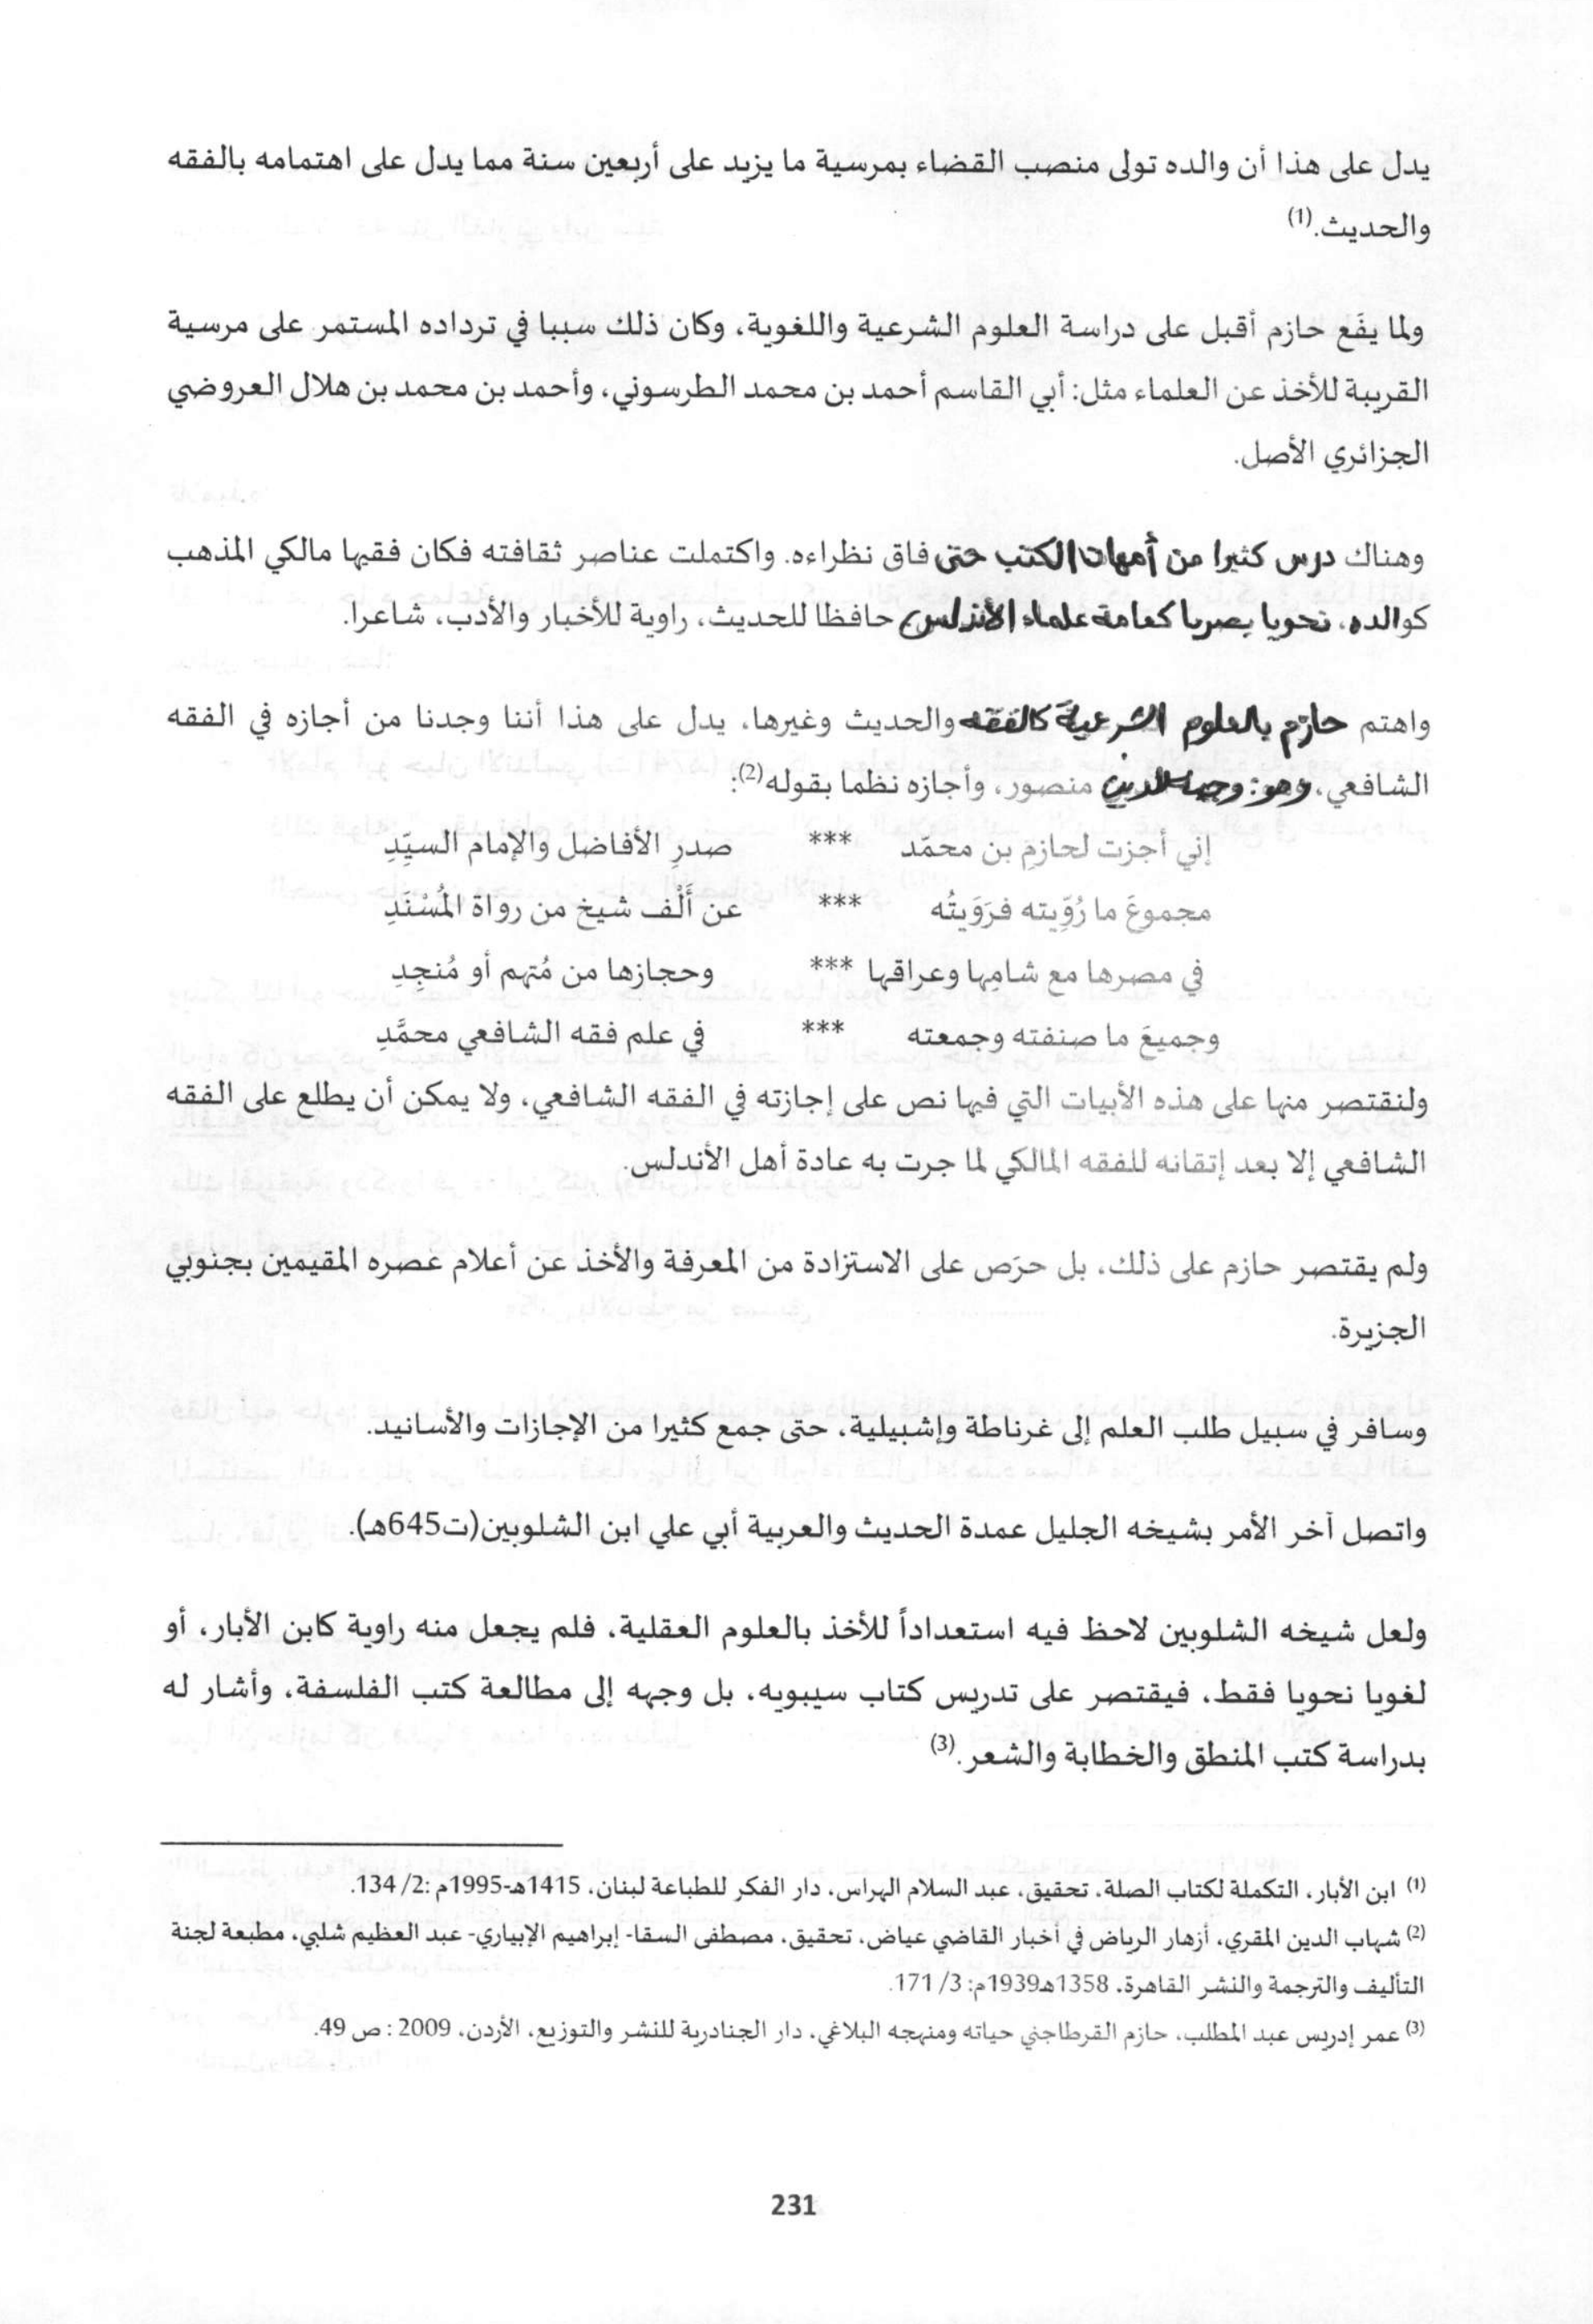 يدل على هذا أن والده تولى منصب القضاء بمرسية ما يزيد على أربعين سنة مما يدل على اهتمامه بالفقه
والحديث.(1)
ولما يفَع حازم أقبل على دراسة العلوم الشرعية واللغوية، وكان ذلك سببا في ترداده المستمر على مرسية
القريبة للأخذ عن العلماء مثل: أبي القاسم أحمد بن محمد الطرسوني، وأحمد بن محمد بن هلال العروضي
الجزائري الأصل.
وهناك درس كثيرا من أمهات الكتب حتى فاق نظراءه. واكتملت عناصر ثقافته فكان فقيها مالكي المذهب
كوالده، نحويا بصريا كعامة علماء الأندلس، حافظا للحديث، راوية للأخبار والأدب، شاعرا.
واهتم حازم بالعلوم الشرعية كالفقه والحديث وغيرها، يدل على هذا أننا وجدنا من أجازه في الفقه
الشافعي، وهو: وجيه الدين منصور، وأجازه نظما بقوله(2):
إني أجزت لحازمِ بن محمّد *** صدرِ الأفاضل والإمام السيّدِ
مجموعَ ما رُوِّيته فرَوَيتُه *** عن أَلْف شيخ من رواة المُسْنَدِ
في مصرها مع شامِها وعراقها *** وحجازها من مُتهم أو مُنجِدِ
وجميعَ ما صنفته وجمعته *** في علم فقه الشافعي محمَّدِ
ولنقتصر منها على هذه الأبيات التي فيها نص على إجازته في الفقه الشافعي، ولا يمكن أن يطلع على الفقه
الشافعي إلا بعد إتقانه للفقه المالكي لما جرت به عادة أهل الأندلس.
ولم يقتصر حازم على ذلك، بل حرَص على الاستزادة من المعرفة والأخذ عن أعلام عصره المقيمين بجنوبي
الجزيرة.
وسافر في سبيل طلب العلم إلى غرناطة وإشبيلية، حتى جمع كثيرا من الإجازات والأسانيد.
واتصل آخر الأمر بشيخه الجليل عمدة الحديث والعربية أبي علي ابن الشلوبين(ت645هـ).
ولعل شيخه الشلوبين لاحظ فيه استعداداً للأخذ بالعلوم العقلية، فلم يجعل منه راوية كابن الأبار، أو
لغويا نحويا فقط، فيقتصر على تدريس كتاب سيبويه، بل وجهه إلى مطالعة كتب الفلسفة، وأشار له
بدراسة كتب المنطق والخطابة والشعر.(3)
(1) ابن الأبار، التكملة لكتاب الصلة، تحقيق، عبد السلام الهراس، دار الفكر للطباعة لبنان، 1415هـ-1995م :2/ 134.
(2) شهاب الدين المقري، أزهار الرياض في أخبار القاضي عياض، تحقيق، مصطفى السقا- إبراهيم الإبياري- عبد العظيم شلبي، مطبعة لجنة
التأليف والترجمة والنشر القاهرة، 1358هـ1939م: 3/ 171.
(3) عمر إدريس عبد المطلب، حازم القرطاجني حياته ومنهجه البلاغي، دار الجنادرية للنشر والتوزيع، الأردن، 2009 : ص 49.
231